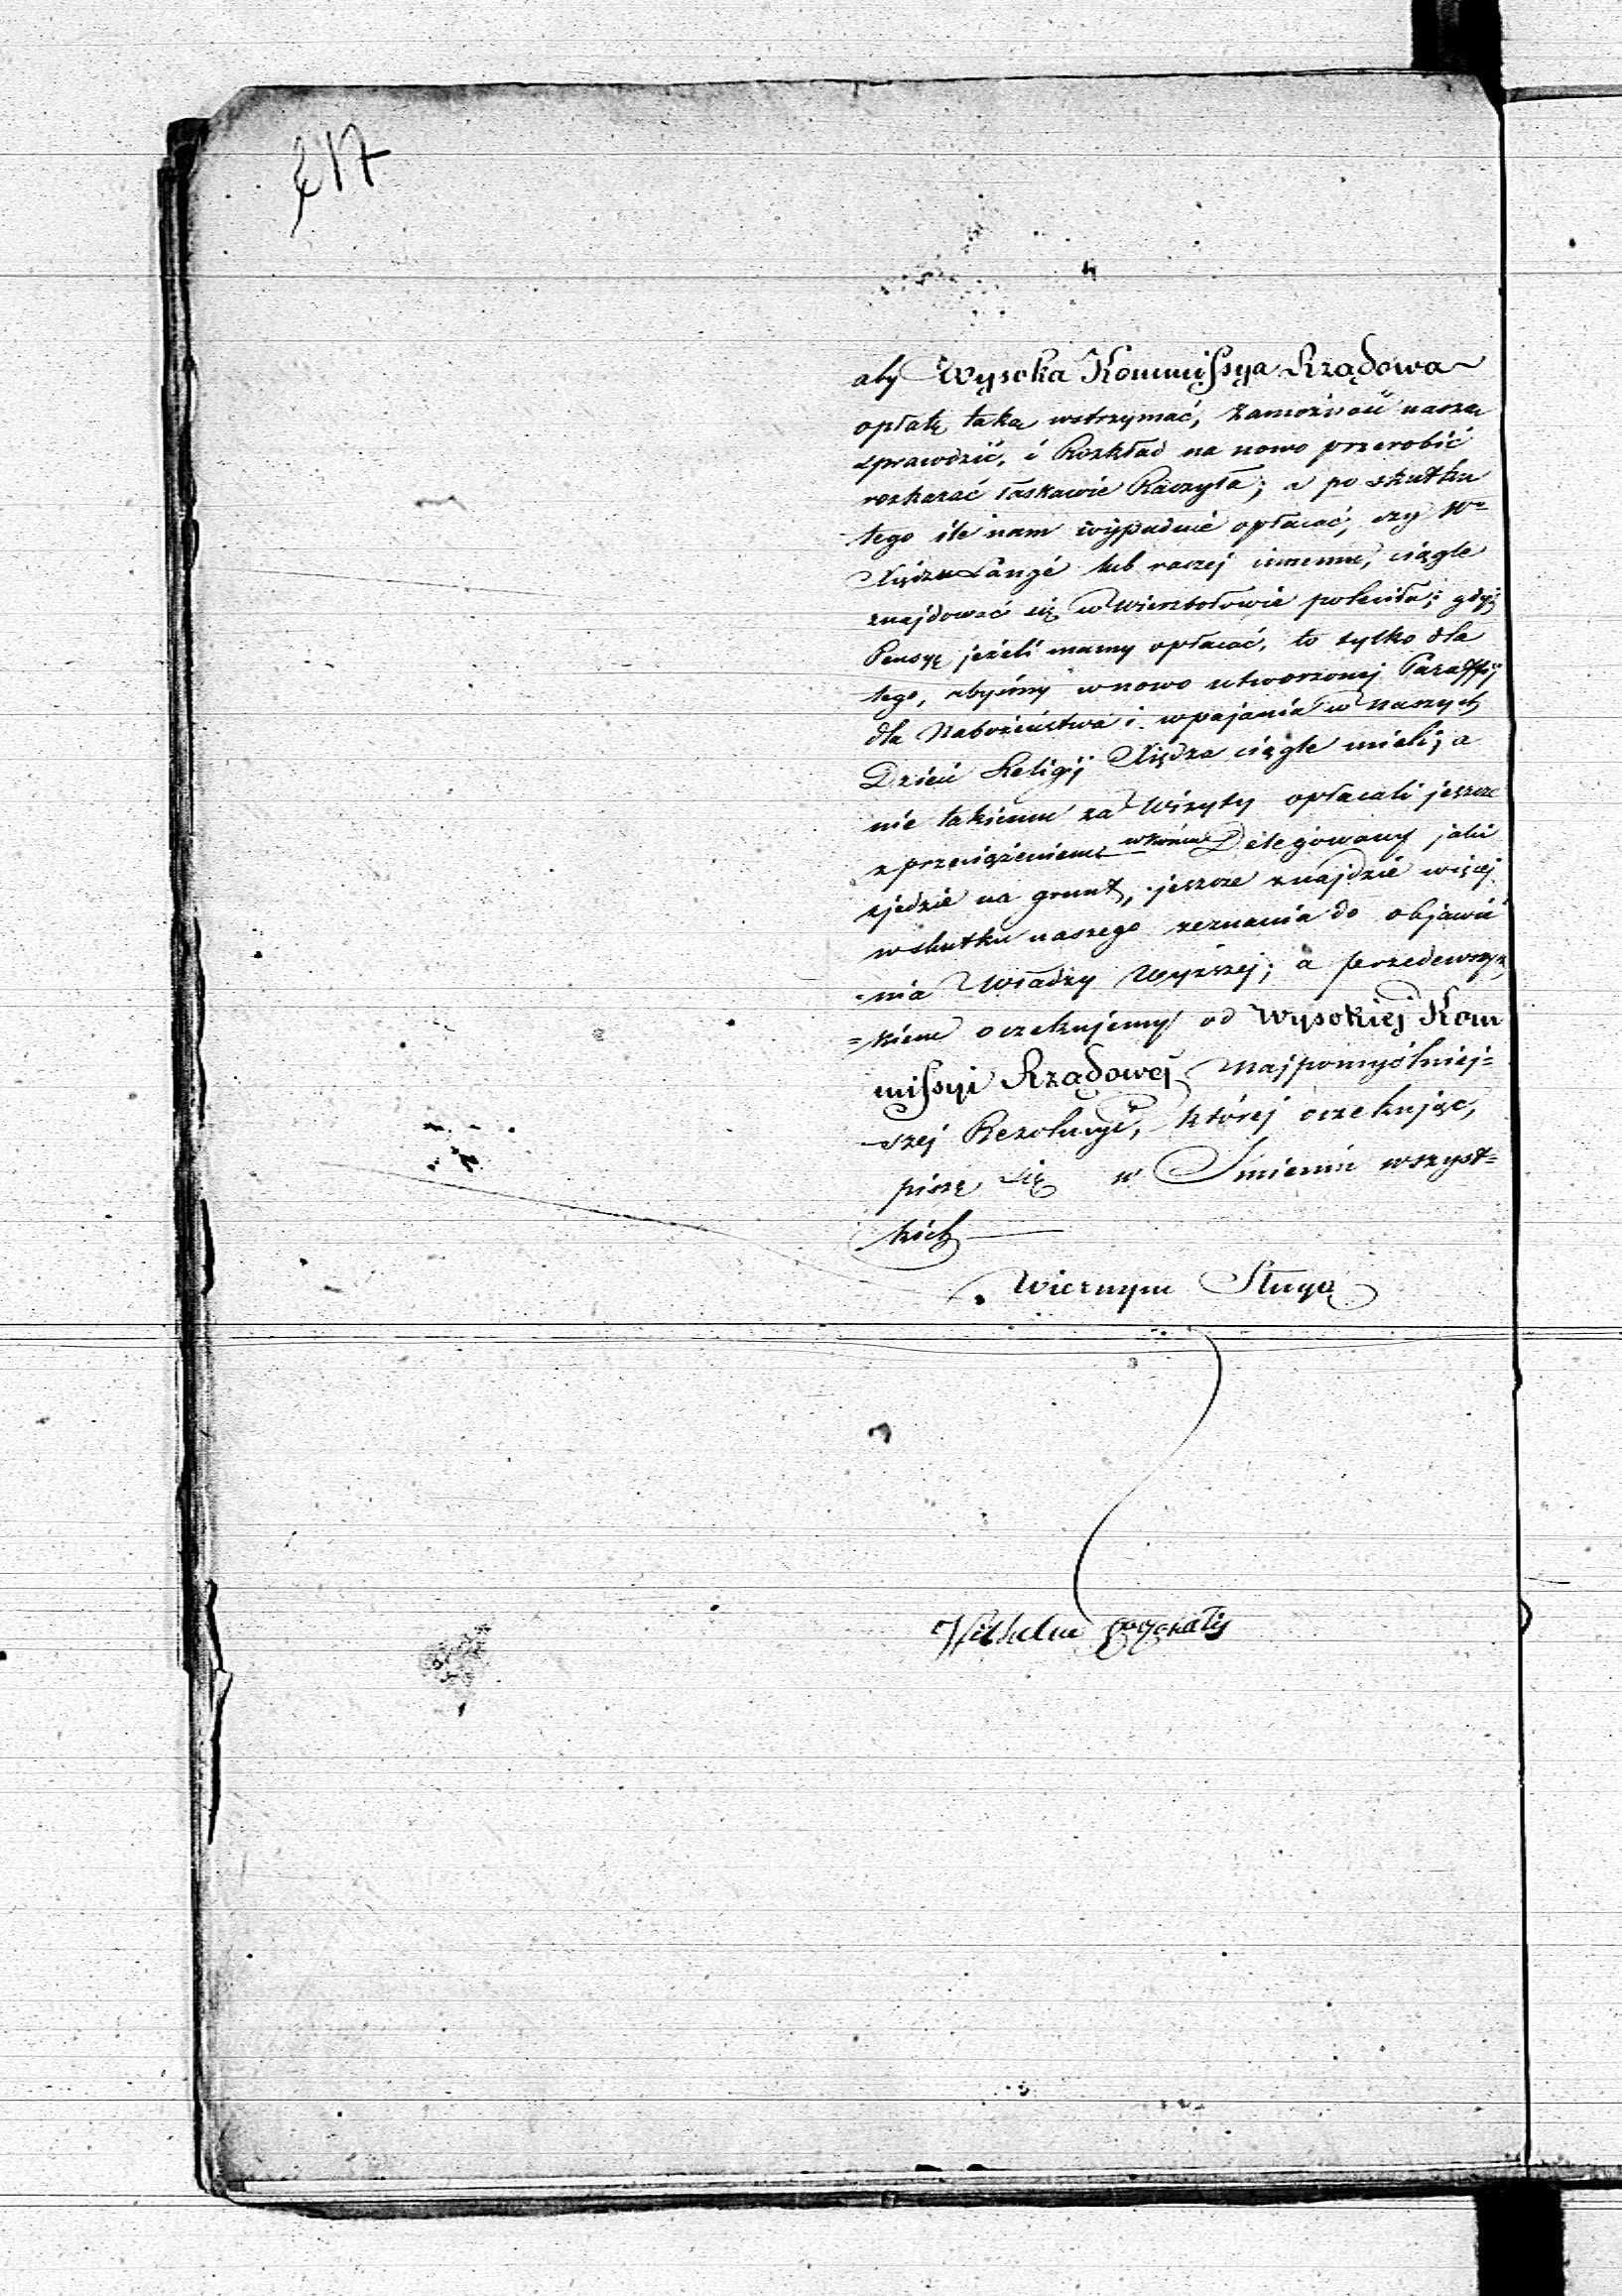 217
aby Wysoka Kommissya Rządowa
opłatę taką wstrzymać, Zamożność naszą
sprawdzić, i Rozkład na nowo przerobić
rozkazać łaskawie Raczyła; a po skutku
tego ile nam wypadnie opłacać, czy Wu
Xiędzu Langé lub raczej innemu, ciągle
znajdować się w Wisztołowie poleciła; gdyż
Pensyę jeżeli mamy opłacać, to tylko dla
tego, abyśmy w nowo utworzonej Paraffij
dla Nabożeństwa i wpajania w naszych
Dzieci Religij Xiędza ciągle mieli; a
nie takiemu za Wizyty opłacali jeszcze
z przeciążeniem Delegowany jaki
zjedzie na grunt, jeszcze znajdzie więcej
w skutku naszego zeznania do objawie
nia Władzy Wyższej; a przedewszyst
=kiem oczekujemy od Wysokiej Kom
missyi Rządowej najpomyślniej=
szej Rezolucyi, której oczekując,
piszę się w Imieniu wszyst=
kich
Wiernym Sługą
Wilhelm